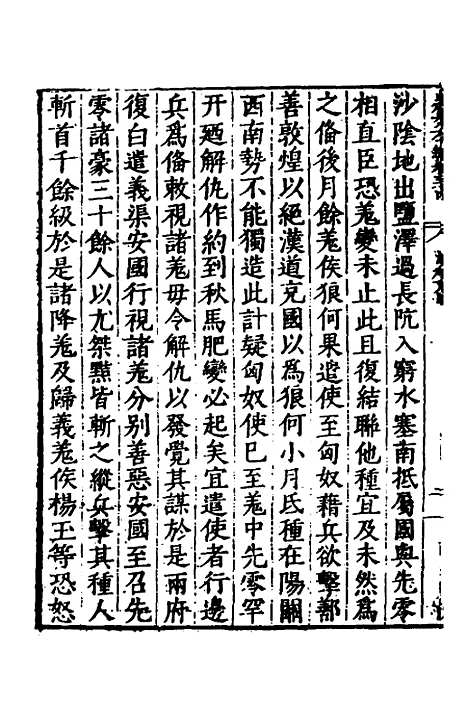 沙陰地出鹽澤過長阬入窮水塞南抵屬國與先零
相直臣恐羗變未止此且復結聯他種宜及未然爲
之俻後月餘羗侯狼何果遣使至匈奴藉兵欲擊鄯
善敦煌以絕漢道充國以爲狼何小月氏種在陽關
西南勢不能獨造此計疑匈奴使已至羗中先零罕
开廼解仇作約到秋馬肥變必起矣宜遣使者行邊
兵爲俻敕視諸羗毋令解仇以發覺其謀於是兩府
復白遣義渠安國行視諸羗分别善惡安國至召先
零諸豪三十餘人以尤桀黠皆斬之縱兵擊其種人
斬首千餘級於是諸降羗及歸義羗侯楊王等恐怒